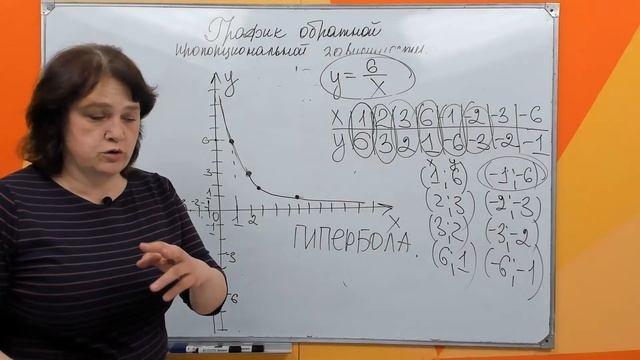 График обратной
пропорциональной зависимости.
y = 6/x
y
x 1 2 3 6 -1 -2 -3 -6
y 6 3 2 1 -6 -3 -2 -1
x y
(1; 6) (-1; -6)
(2; 3) (-2; -3)
(3; 2) (-3; -2)
(6; 1) (-6; -1)
6
3
1
0 1 2
x
ГИПЕРБОЛА.
-3
-6